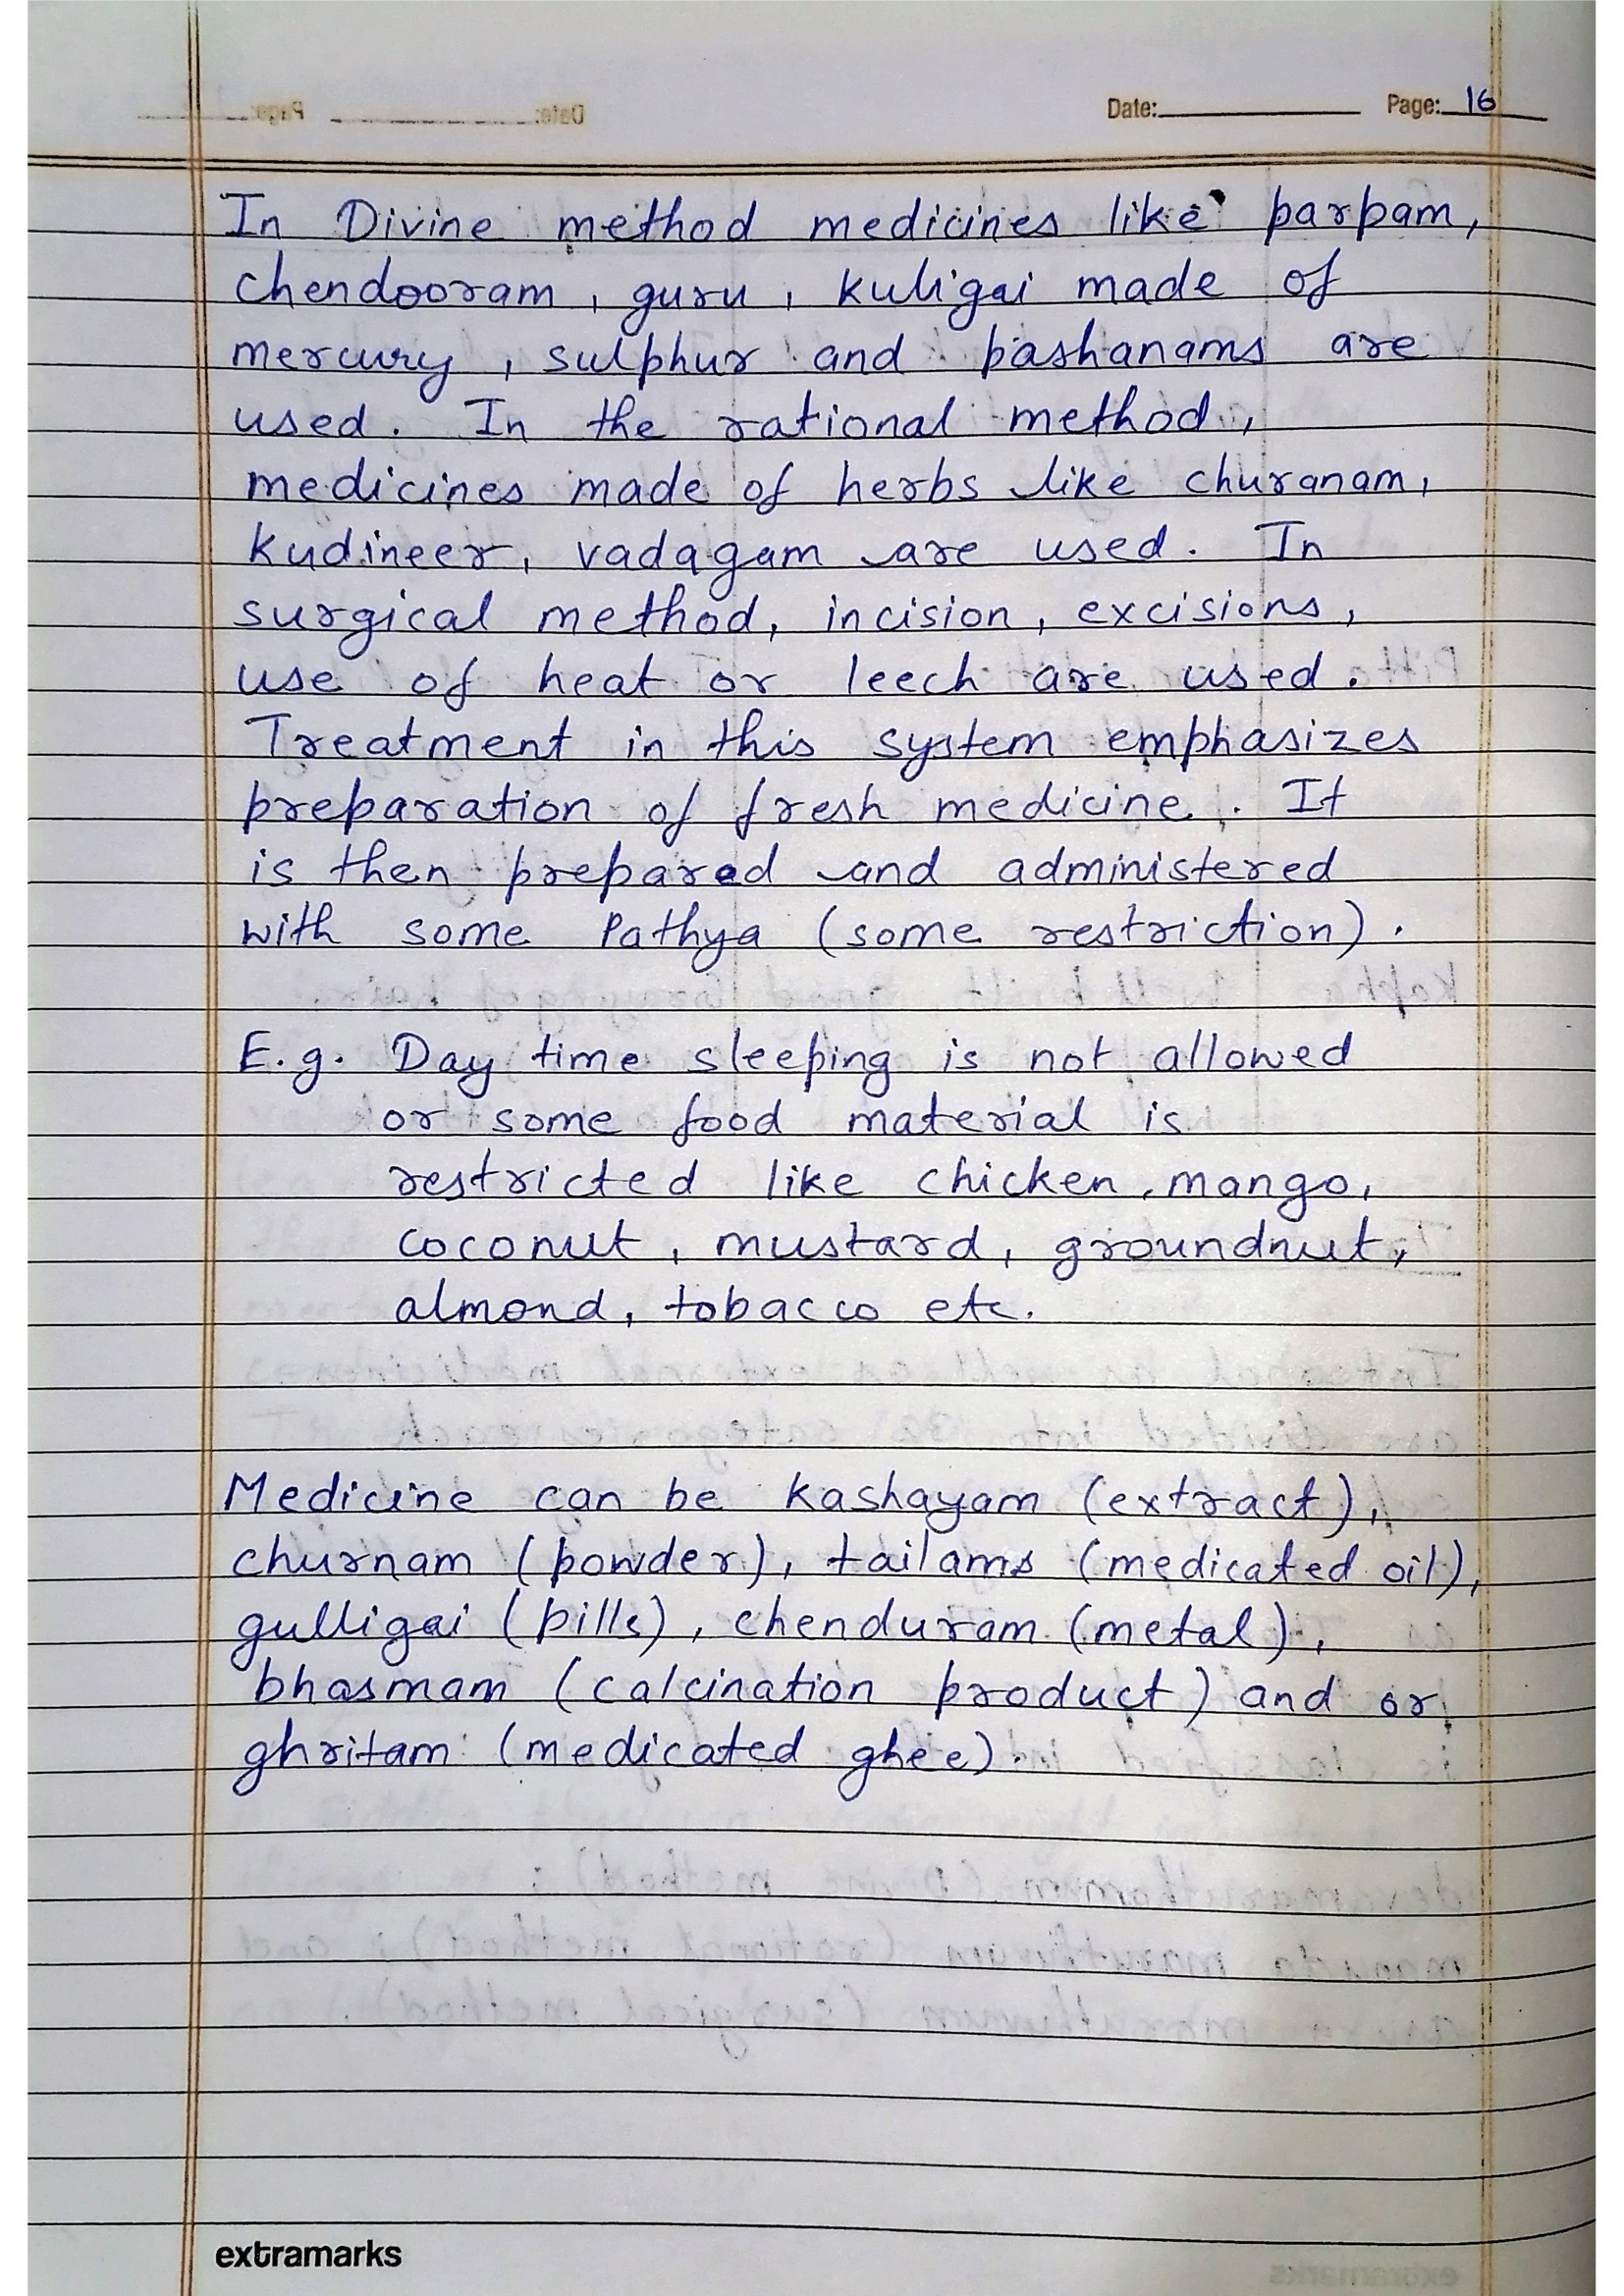 Date: Page: 16
In Divine method medicines like parpam,
chendooram, guru, kuligai made of
mercury, sulphur and pashanams are
used. In the rational method,
medicines made of herbs like churanam,
kudineer, vadagam are used. In
surgical method, incision, excisions,
use of heat or leech are used.
Treatment in this system emphasizes
preparation of fresh medicine. It
is then prepared and administered
with some Pathya (some restriction).
E.g. Day time sleeping is not allowed
or some food material is
restricted like chicken, mango,
coconut, mustard, groundnut,
almond, tobacco etc.
Medicine can be kashayam (extract),
churnam (powder), tailams (medicated oil),
gulligai (pills), chenduram (metal),
bhasmam (calcination product) and or
ghritam (medicated ghee).
extramarks